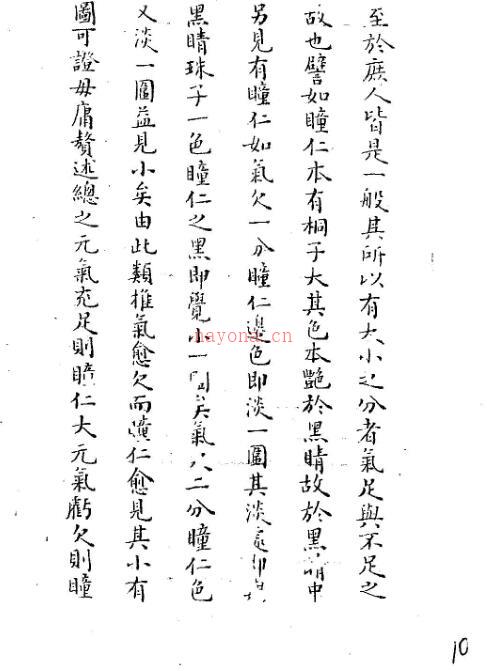 至於庶人皆是一般其所以有大小之分者氣足與不足之
故也譬如瞳仁本有桐子大其色本艷於黑睛故於黑睛中
另見有瞳仁如氣欠一分瞳仁邊色即淡一圈其淡處即
黑睛珠子一色瞳仁之黑即覺小一圈矣氣欠二分瞳仁色
又淡一圈益見小矣由此類推氣愈欠而瞳仁愈見其小有
圖可證毋庸贅述總之元氣充足則瞳仁大元氣虧欠則瞳
10
nayona.cn